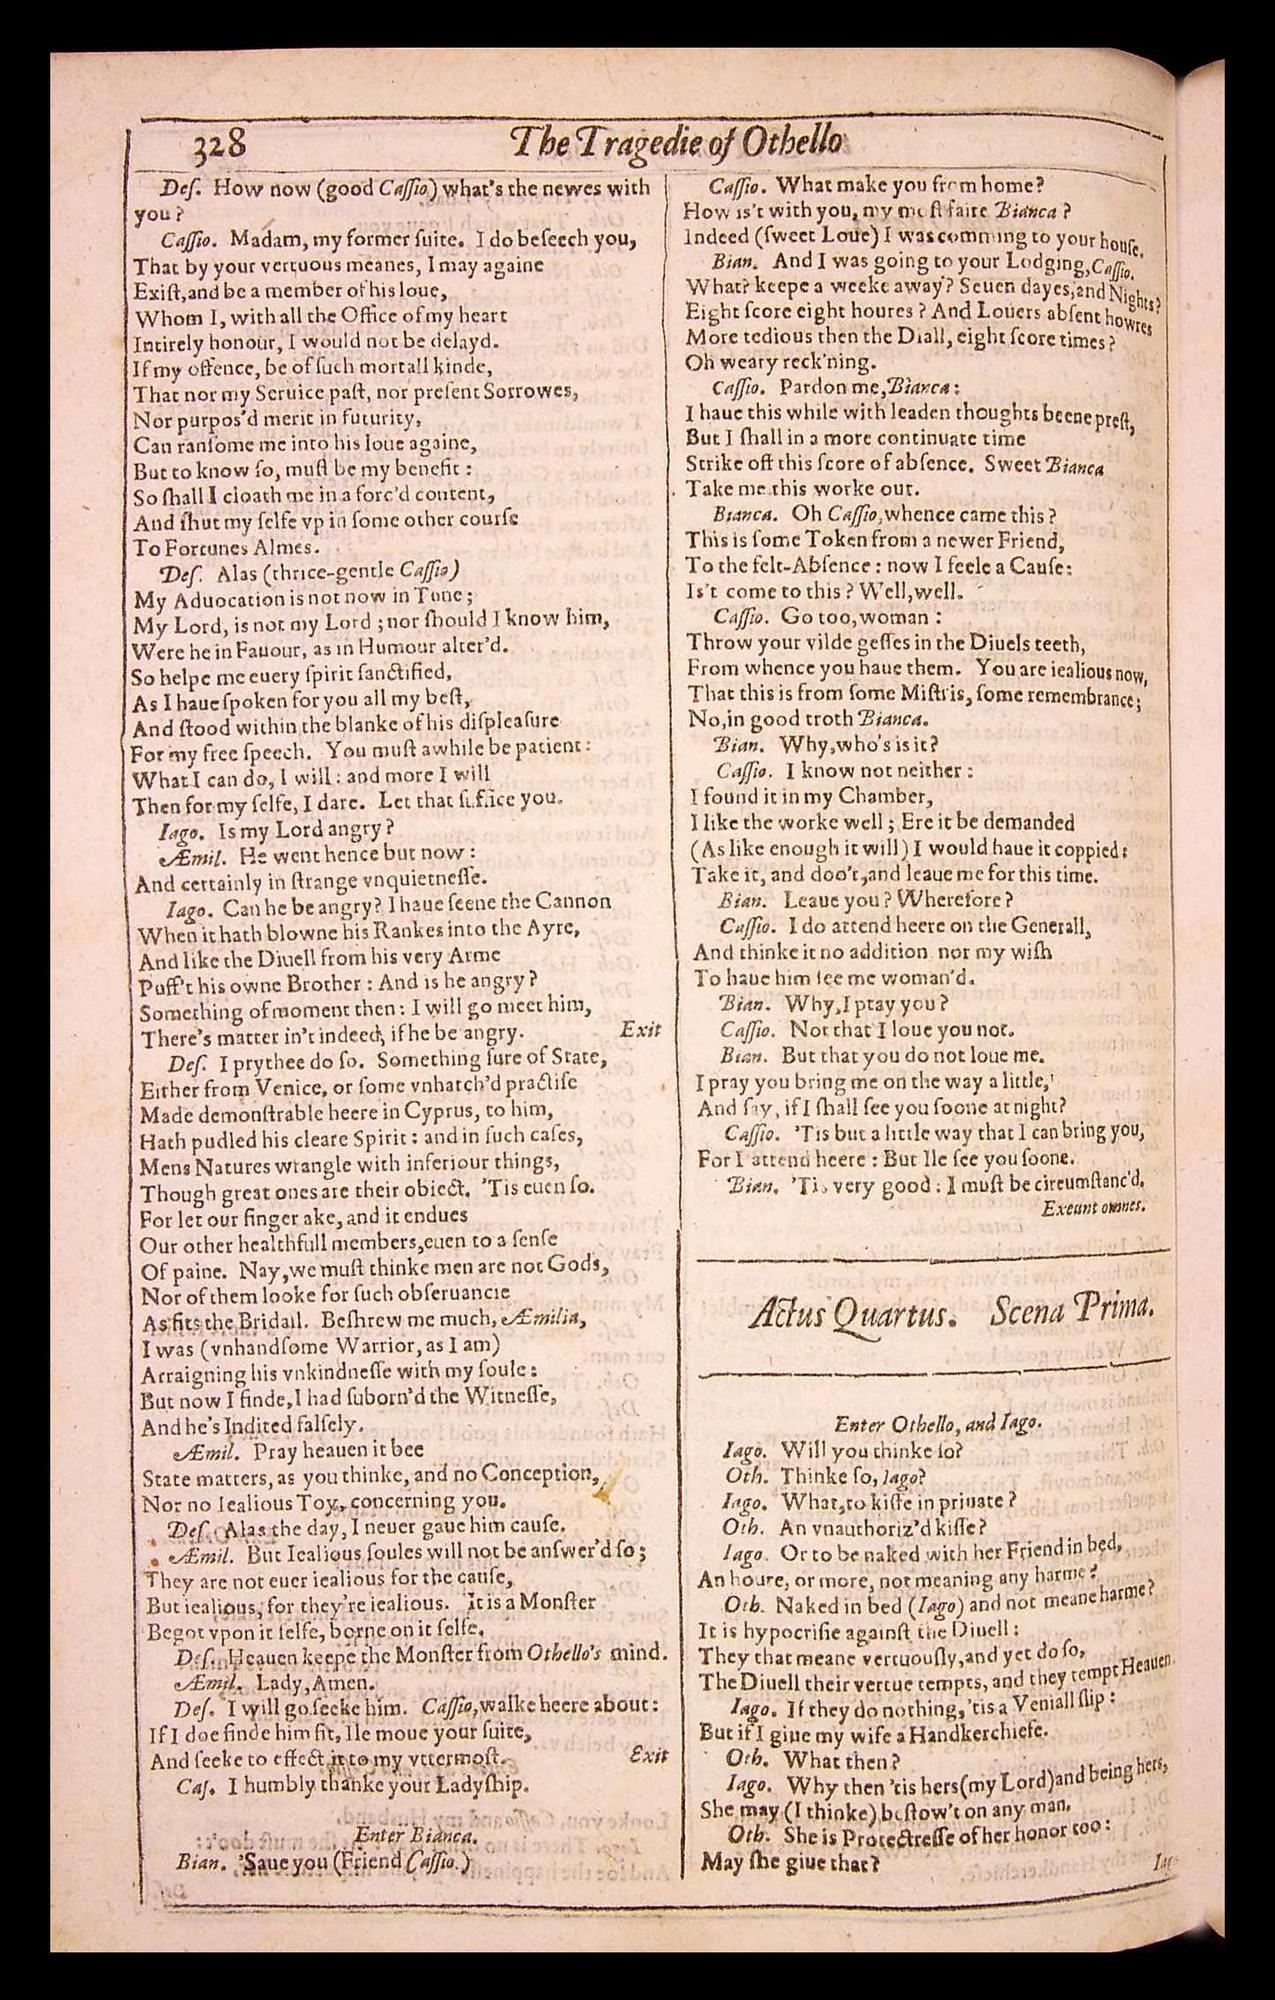 328
The Tragedie of Othello
Deſ. How now (good Caſſio) what's the newes with
you?
Caſſio. Madam, my former ſuite. I do beſeech you,
That by your vertuous meanes, I may againe
Exiſt, and be a member of his loue,
Whom I, with all the Office of my heart
Intirely honour, I would not be delayd.
If my offence, be of ſuch mortall kinde,
That nor my Seruice paſt, nor preſent Sorrowes,
Nor purpos'd merit in futurity,
Can ranſome me into his loue againe,
But to know ſo, muſt be my benefit:
So ſhall I cloath me in a forc'd content,
And ſhut my ſelfe vp in ſome other courſe
To Fortunes Almes.
Deſ. Alas (thrice-gentle Caſſio)
My Aduocation is not now in Tune;
My Lord, is not my Lord; nor ſhould I know him,
Were he in Fauour, as in Humour alter'd.
So helpe me euery ſpirit ſanctified,
As I haue ſpoken for you all my beſt,
And ſtood within the blanke of his diſpleaſure
For my free ſpeech. You muſt awhile be patient:
What I can do, I will: and more I will
Then for my ſelfe, I dare. Let that ſuffice you.
Iago. Is my Lord angry?
Æmil. He went hence but now:
And certainly in ſtrange vnquietneſſe.
Iago. Can he be angry? I haue ſeene the Cannon
When it hath blowne his Rankes into the Ayre,
And like the Diuell from his very Arme
Puff't his owne Brother: And is he angry?
Something of moment then: I will go meet him,
There's matter in't indeed, if he be angry. Exit
Deſ. I prythee do ſo. Something ſure of State,
Either from Venice, or ſome vnhatch'd practiſe
Made demonſtrable heere in Cyprus, to him,
Hath pudled his cleare Spirit: and in ſuch caſes,
Mens Natures wrangle with inferiour things,
Though great ones are their obiect. 'Tis euen ſo.
For let our finger ake, and it endues
Our other healthfull members, euen to a ſenſe
Of paine. Nay, we muſt thinke men are not Gods,
Nor of them looke for ſuch obſeruancie
As fits the Bridall. Beſhrew me much, Æmilia,
I was (vnhandſome Warrior, as I am)
Arraigning his vnkindneſſe with my ſoule:
But now I finde, I had ſuborn'd the Witneſſe,
And he's Indited falſely.
Æmil. Pray heauen it bee
State matters, as you thinke, and no Conception,
Nor no Iealious Toy, concerning you.
Deſ. Alas the day, I neuer gaue him cauſe.
Æmil. But Iealious ſoules will not be anſwer'd ſo;
They are not euer iealious for the cauſe,
But iealious, for they're iealious. It is a Monſter
Begot vpon it ſelfe, borne on it ſelfe.
Deſ. Heauen keepe the Monſter from Othello's mind.
Æmil. Lady, Amen.
Deſ. I will go ſeeke him. Caſſio, walke heere about:
If I doe finde him fit, Ile moue your ſuite,
And ſeeke to effect it to my vttermoſt. Exit
Caſ. I humbly thanke your Ladyſhip.
Enter Bianca.
Bian. 'Saue you (Friend Caſſio.)
Caſſio. What make you from home?
How is't with you, my moſt faire Bianca?
Indeed (ſweet Loue) I was comming to your houſe.
Bian. And I was going to your Lodging, Caſſio.
What? keepe a weeke away? Seuen dayes, and Nights?
Eight ſcore eight houres? And Louers abſent howres
More tedious then the Diall, eight ſcore times?
Oh weary reck'ning.
Caſſio. Pardon me, Bianca:
I haue this while with leaden thoughts beene preſt,
But I ſhall in a more continuate time
Strike off this ſcore of abſence. Sweet Bianca
Take me this worke out.
Bianca. Oh Caſſio, whence came this?
This is ſome Token from a newer Friend,
To the felt-Abſence: now I feele a Cauſe:
Is't come to this? Well, well.
Caſſio. Go too, woman:
Throw your vilde geſſes in the Diuels teeth,
From whence you haue them. You are iealious now,
That this is from ſome Miſtris, ſome remembrance;
No, in good troth Bianca.
Bian. Why, who's is it?
Caſſio. I know not neither:
I found it in my Chamber,
I like the worke well; Ere it be demanded
(As like enough it will) I would haue it coppied:
Take it, and doo't, and leaue me for this time.
Bian. Leaue you? Wherefore?
Caſſio. I do attend heere on the Generall,
And thinke it no addition nor my wiſh
To haue him ſee me woman'd.
Bian. Why, I pray you?
Caſſio. Not that I loue you not.
Bian. But that you do not loue me.
I pray you bring me on the way a little,
And ſay, if I ſhall ſee you ſoone at night?
Caſſio. 'Tis but a little way that I can bring you,
For I attend heere: But Ile ſee you ſoone.
Bian. 'Tis very good: I muſt be circumſtanc'd.
Exeunt omnes.
Actus Quartus. Scena Prima.
Enter Othello, and Iago.
Iago. Will you thinke ſo?
Oth. Thinke ſo, Iago?
Iago. What, to kiſſe in priuate?
Oth. An vnauthoriz'd kiſſe?
Iago. Or to be naked with her Friend in bed,
An houre, or more, not meaning any harme?
Oth. Naked in bed (Iago) and not meane harme?
It is hypocriſie againſt the Diuell:
They that meane vertuouſly, and yet do ſo,
The Diuell their vertue tempts, and they tempt Heauen.
Iago. If they do nothing, 'tis a Veniall ſlip:
But if I giue my wife a Handkerchiefe.
Oth. What then?
Iago. Why then 'tis hers (my Lord) and being hers,
She may (I thinke) beſtow't on any man.
Oth. She is Protectreſſe of her honor too:
May ſhe giue that?